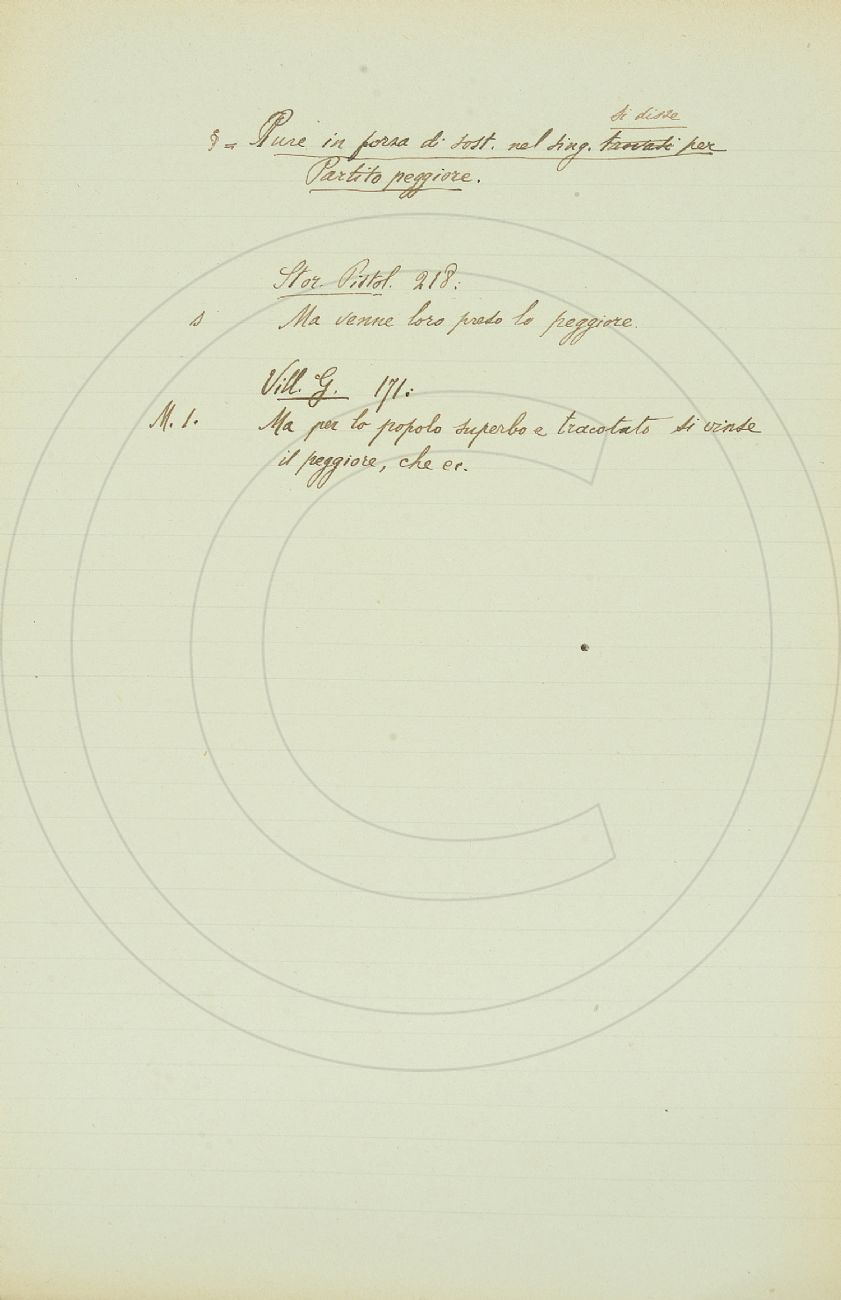 si disse
§ = Pure in forza di sost. nel sing. trovasi per
Partito peggiore.
Stor. Pistol. 218:
s Ma venne loro preso lo peggiore.
Vill. G. 171:
M. 1. Ma per lo popolo superbo e tracotato si vinse
il peggiore, che ec.